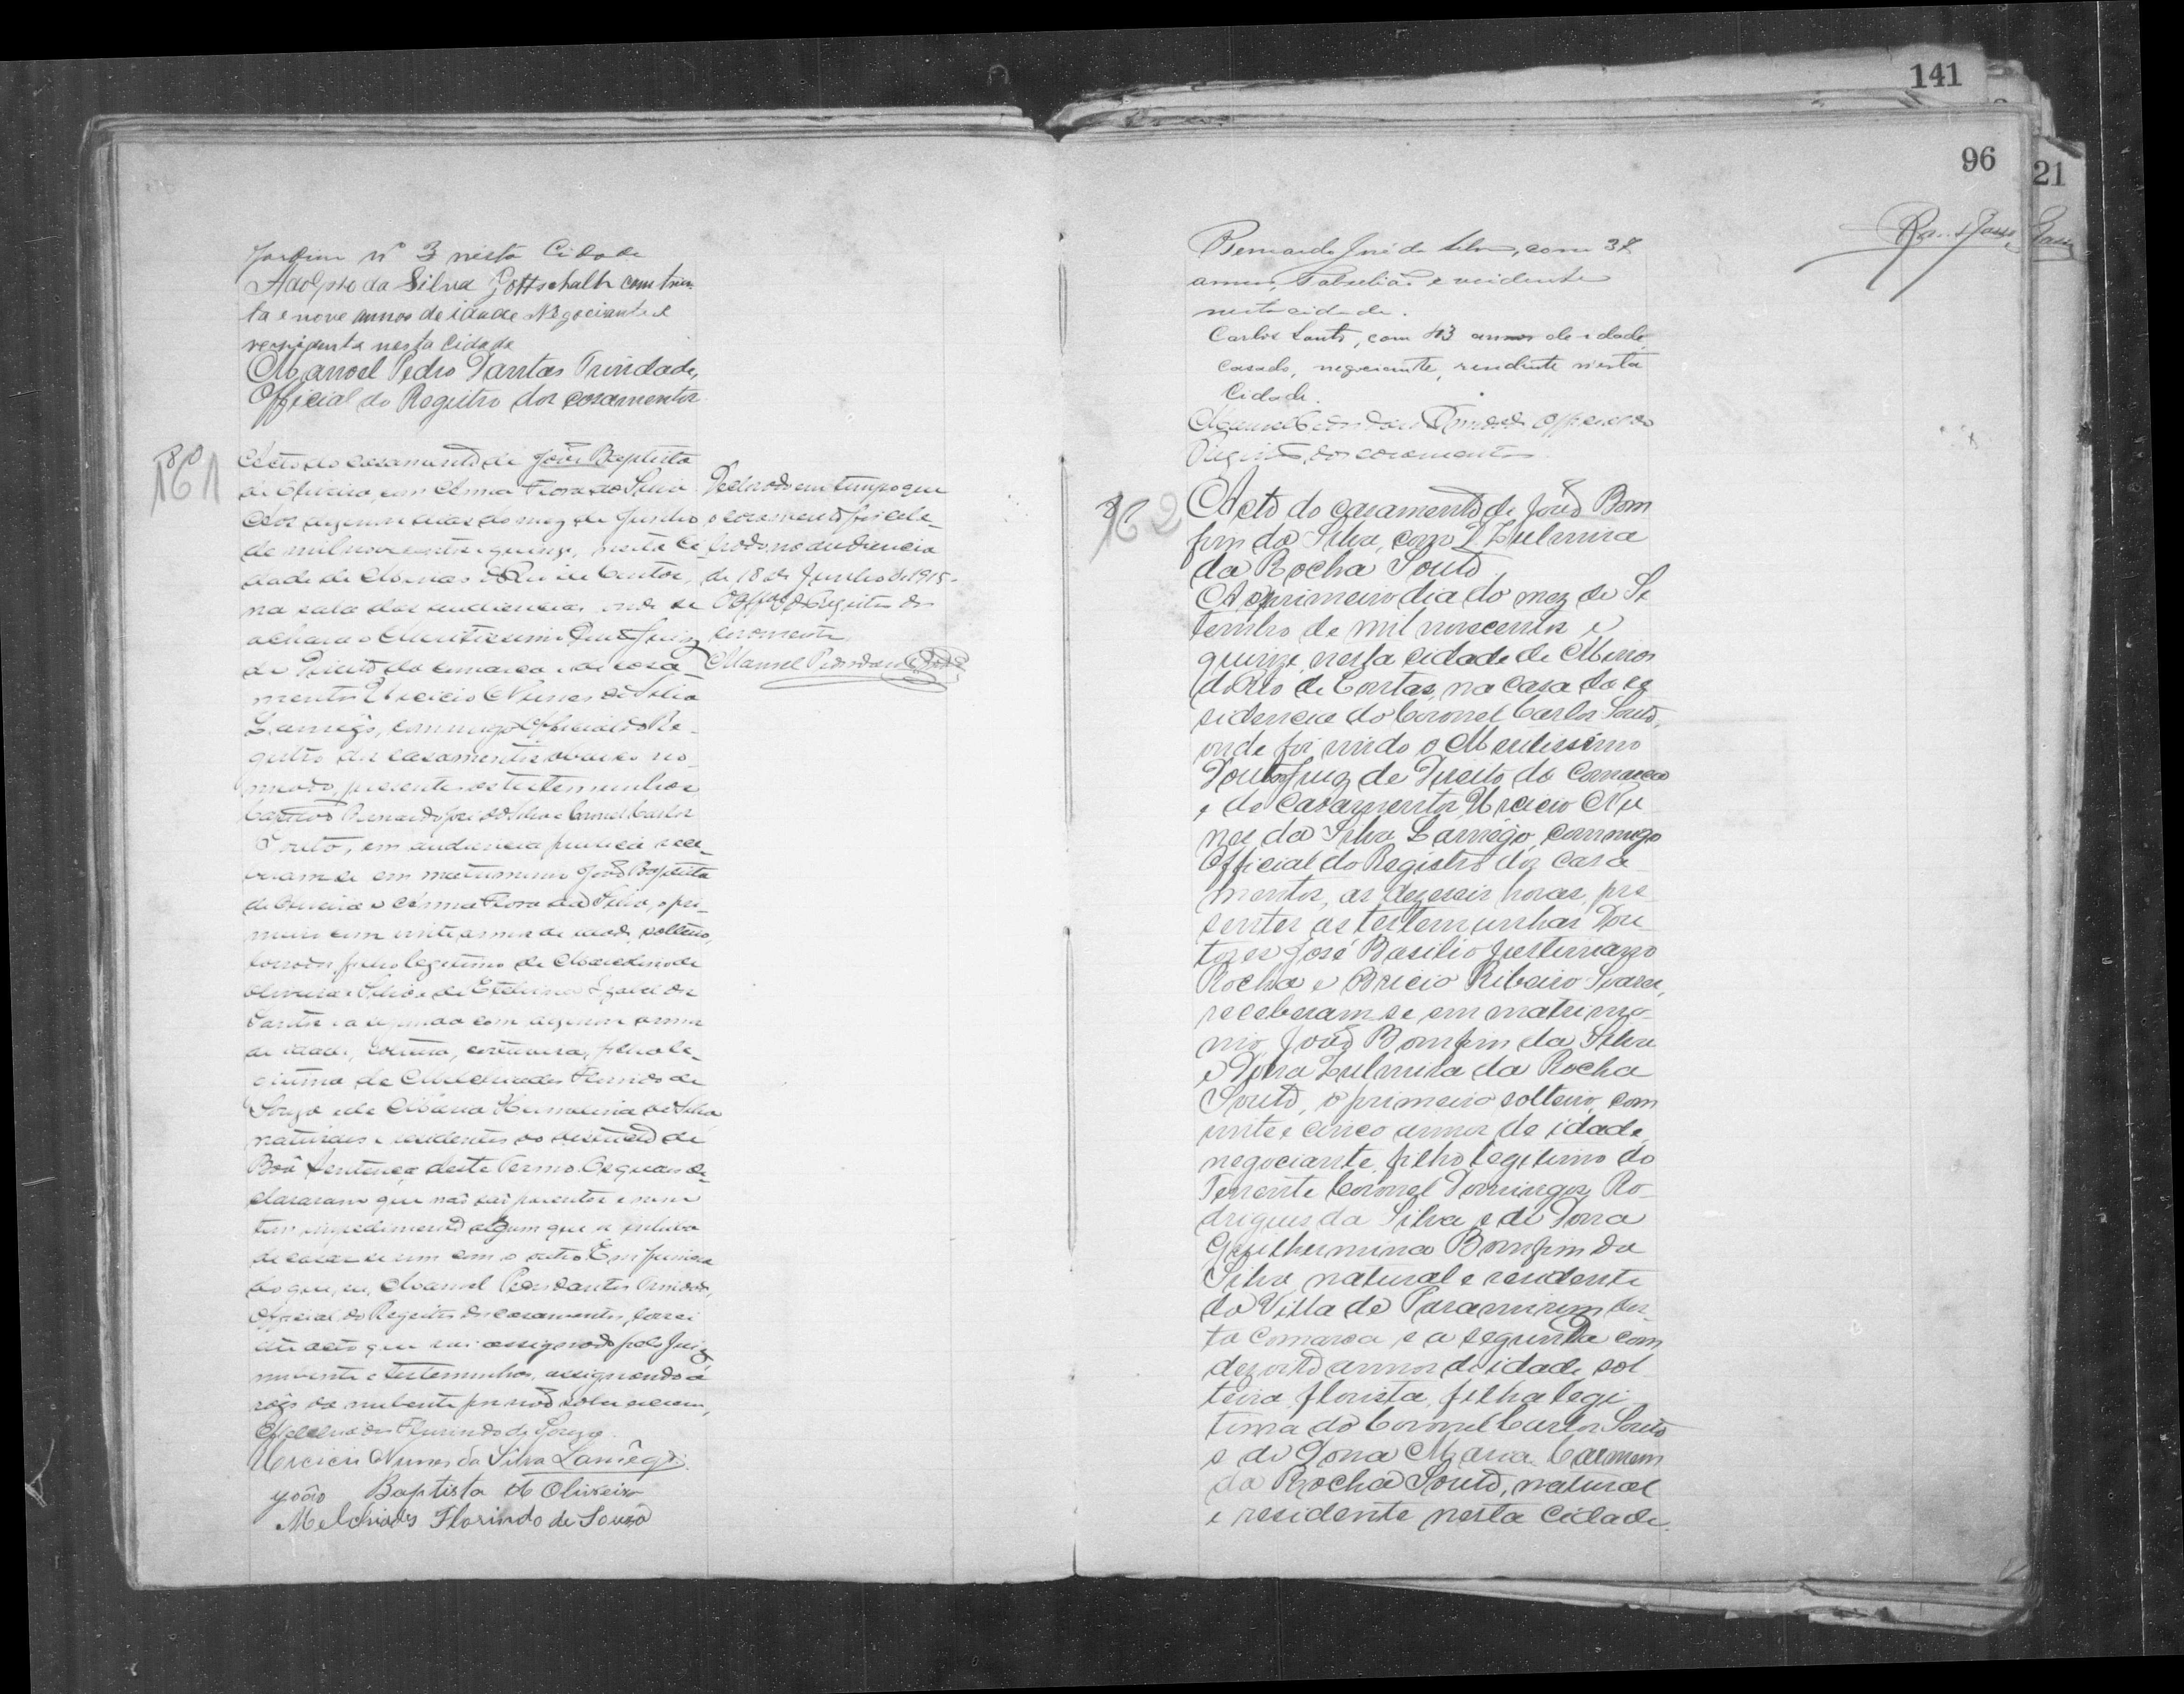 Jardim nº 3 nesta Cidade
Adolpho da Silva Gottschalk com trin-
ta e nove annos de idade Negociante e
residente nesta Cidade
Manoel Pedro Dantas Trindade,
Official do Registro dos casamentos.
161
Acto do casamento de João Baptista
de Oliveira, com Anna Flora da Silva
Aos dezenove dias do mez de Junho
de mil novecentos e quinze, nesta Ci
dade de Minas do Rio de Contas,
na sala das audiencias, onde se
achava o Meritissimo Doutor Juiz
de Direito da comarca e de casa
mentos Urcicio Nunes da Silva
Lamêgo, commigo Official do Re-
gistro dos casamentos abaixo no-
meado, presentes as testemunhas
Bernardo José da Silva e Coronel Carlos
Souto, em audiencia publica rece-
beram-se em matrimonio João Baptista
de Oliveira e Anna Flora da Silva, o pri-
meiro com vinte annos de idade, solteiro,
lavrador, filho legitimo de
Oliveira e Silva e de
Santos e a segunda com dezenove annos
de idade, solteira, costureira, filha le-
gitima de Melchiades Florindo de
Souza e de Maria da Silva
naturaes e residentes no districto de
Bôa Sentença, deste Termo. Os quaes de-
clararam que não são parentes e nem
tem impedimento algum que os inhiba
de casar-se um com o outro. Em firmeza
do que, eu, Manoel Pedro Dantas Trindade,
Official do Registro dos casamentos, lavrei
este acto que vai assignado pelo Juiz,
nubente e testemunhas, assignando a
rogo da nubente por não saber escrever,
Melchiades Florindo de Souza.
Urcicio Nunes da Silva Lamêgo.
João Baptista de Oliveira
Melchiades Florindo de Souza
Declaro em tempo que
o casamento foi cele-
brado na audiencia
de 18 de Junho de 1915.
O Offal do Registro dos
casamentos.
Manoel Pedro Dantas Trinde
141
96
21
Bernardo José da Silva, com 37
annos, Tabellião e residente
nesta cidade.
Carlos Souto, com 43 annos de idade
casado, negociante, residente n'esta
Cidade.
Manoel Pedro Dantas Trindade Official do
Registro dos casamentos.
162
Acto do casamento de João Bom
fim da Silva, com D. Zulmira
da Rocha Souto
Ao primeiro dia do mez de Se
tembro de mil novecentos e
quinze, nesta cidade de Minas
do Rio de Contas, na casa da re
sidencia do Coronel Carlos Souto,
onde foi vindo o Meritissimo
Doutor Juiz de Direito da Comarca
e de Casamentos, Urcicio Nu
nes da Silva Lamêgo, commigo
Official do Registro dos Casa
mentos, as dezeseis horas, pre
sentes as testemunhas Dou
tores José Basilio Justiniano
Rocha e Bricio Ribeiro Soares,
receberam-se em matrimo-
nio, João Bomfim da Silva
e Dona Zulmira da Rocha
Souto, o primeiro solteiro, com
vinte e cinco annos de idade,
negociante, filho legitimo do
Tenente Coronel Domingos Ro-
drigues da Silva e de Dona
Guilhermina Bomfim da
Silva, natural e residente
da Villa de Paramirim des-
ta comarca e a segunda com
dezoito annos de idade, sol
teira, florista, filha legi
tima do Coronel Carlos Souto
e de Dona Maria Carmem
da Rocha Souto, natural
e residente nesta Cidade.